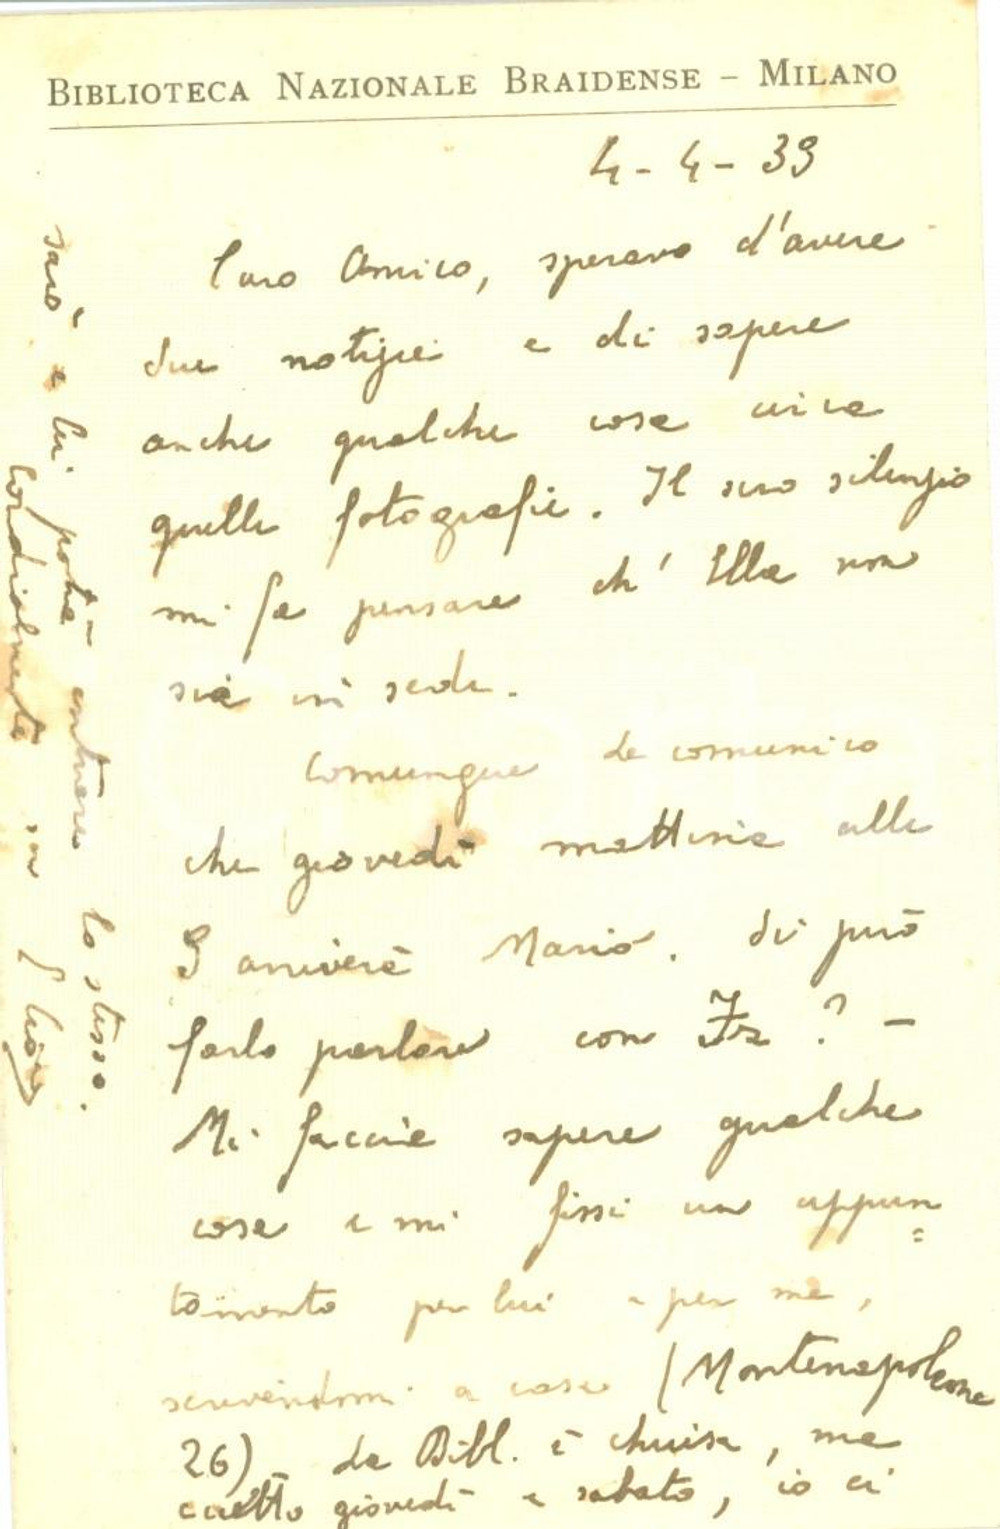 BIBLIOTECA NAZIONALE BRAIDENSE – MILANO
4 - 4 - 39
Caro Amico, speravo d'avere
sue notizie e di sapere
anche qualche cosa circa
quelle fotografie. Il suo silenzio
mi fa pensare ch'Ella non
sia in sede.
Comunque Le comunico
che giovedì mattina alle
9 arriverà Mario. Si può
farlo parlare con Fz? –
Mi faccia sapere qualche
cosa e mi fissi un appun=
tamento per lui e per me,
scrivendomi a casa (Montenapoleone
26). La Bibl. è chiusa, ma
eccetto giovedì e sabato, io ci
sarò e lei potrà entrare lo stesso.
Cordialmente suo